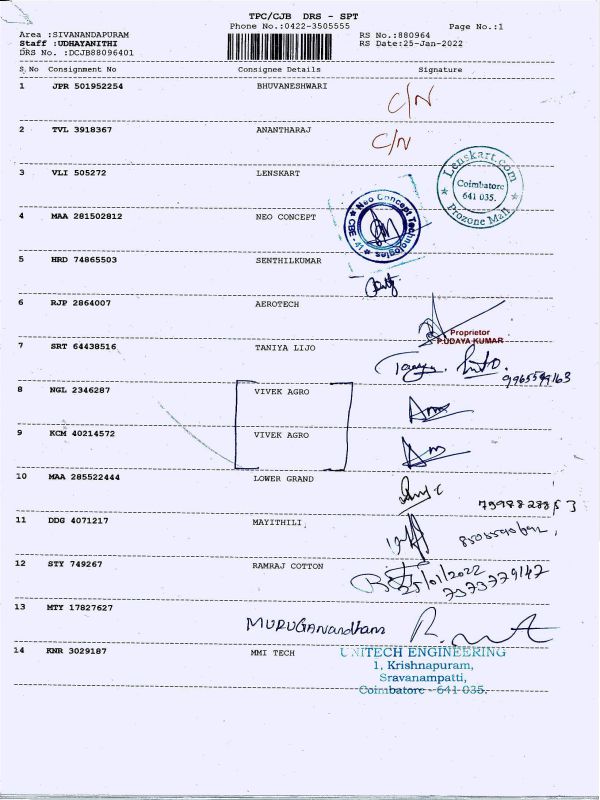 TPC/CJB DRS - SPT
Phone No.:0422-3505555 Page No.:1
Area :SIVANANDAPURAM RS No.:880964
Staff :UDHAYANITHI RS Date:25-Jan-2022
DRS No. :DCJB88096401
S.No Consignment No Consignee Details Signature
1 JPR 501952254 BHUVANESHWARI C/N
2 TVL 3918367 ANANTHARAJ C/N
3 VLI 505272 LENSKART Lenskart.com Coimbatore 641 035. Prozone Mall
4 MAA 281502812 NEO CONCEPT Neo Concept Technologies CBE - 41
5 HRD 74865503 SENTHILKUMAR
6 RJP 2864007 AEROTECH
Proprietor
P.UDAYA KUMAR
7 SRT 64438516 TANIYA LIJO
8 NGL 2346287 VIVEK AGRO
9 KCM 40214572 VIVEK AGRO
10 MAA 285522444 LOWER GRAND
11 DDG 4071217 MAYITHILI
12 STY 749267 RAMRAJ COTTON 25/01/2022
7373779147
13 MTY 17827627
MURUGANandham
14 KNR 3029187 MMI TECH UNITECH ENGINEERING
1, Krishnapuram,
Sravanampatti,
Coimbatore - 641 035.